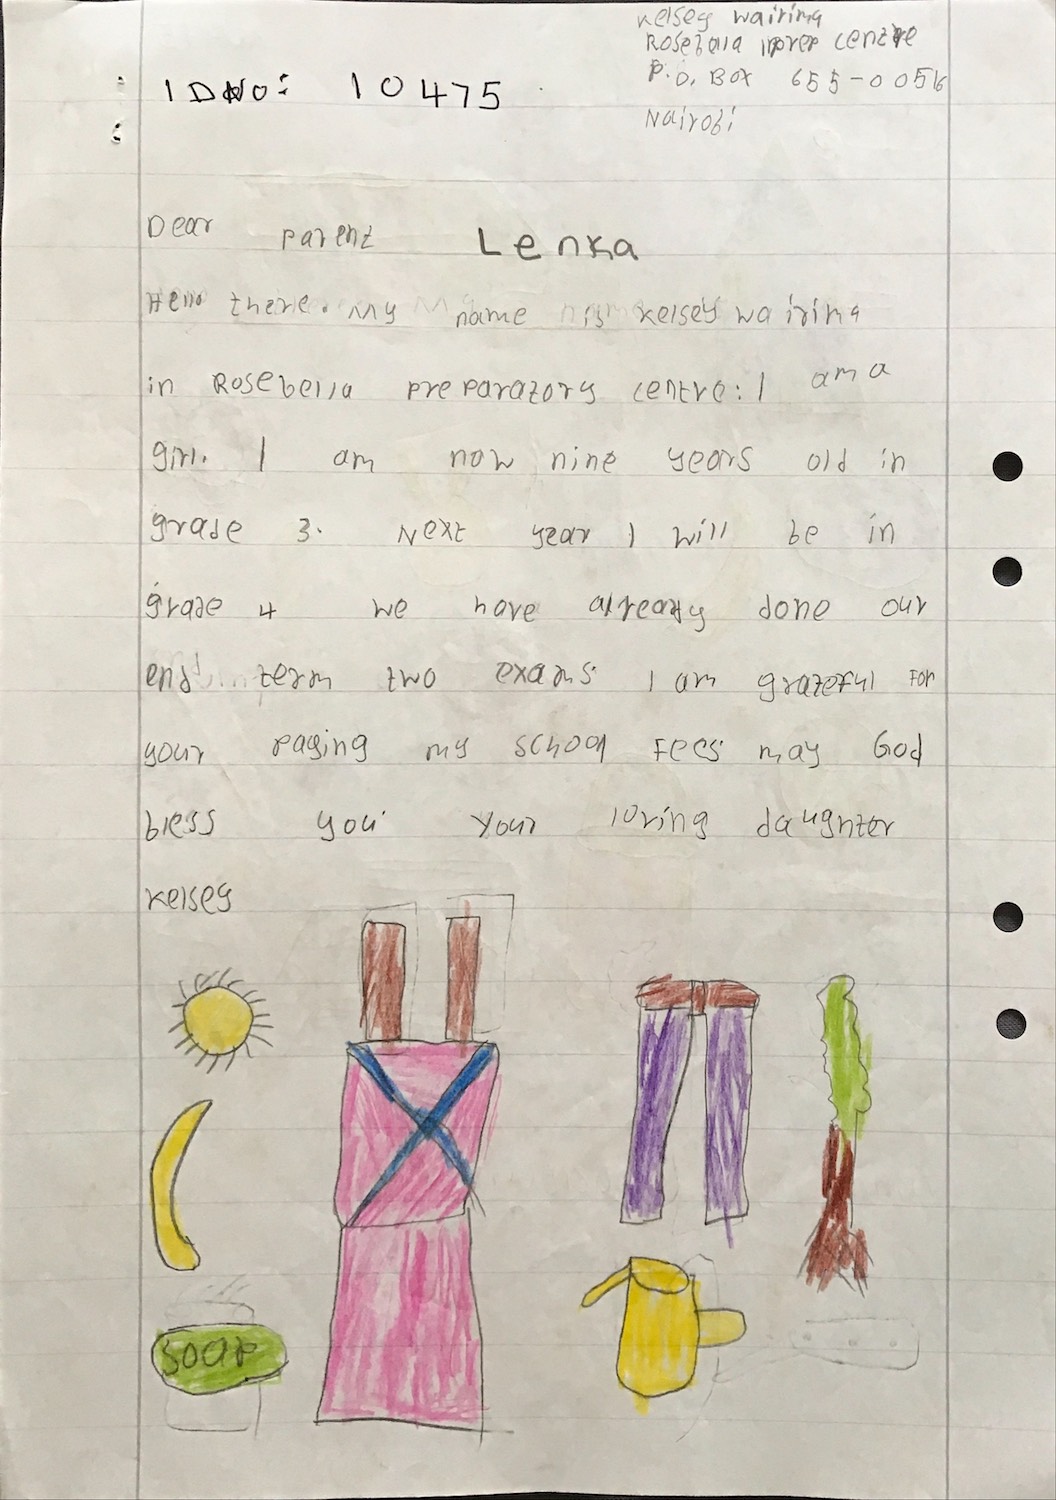 Kelsey wairima
Rosebella prep centre
P.O. Box 655-00516
Nairobi
IDNO: 10475
Dear parent Lenka
Hello there. My name is Kelsey wairima
in Rosebella preparatory centre: I am a
girl. I am now nine years old in
grade 3. Next year I will be in
grade 4 we have already done our
end term two exams I am grateful for
your paying my school fees may God
bless you your loving daughter
Kelsey
soap